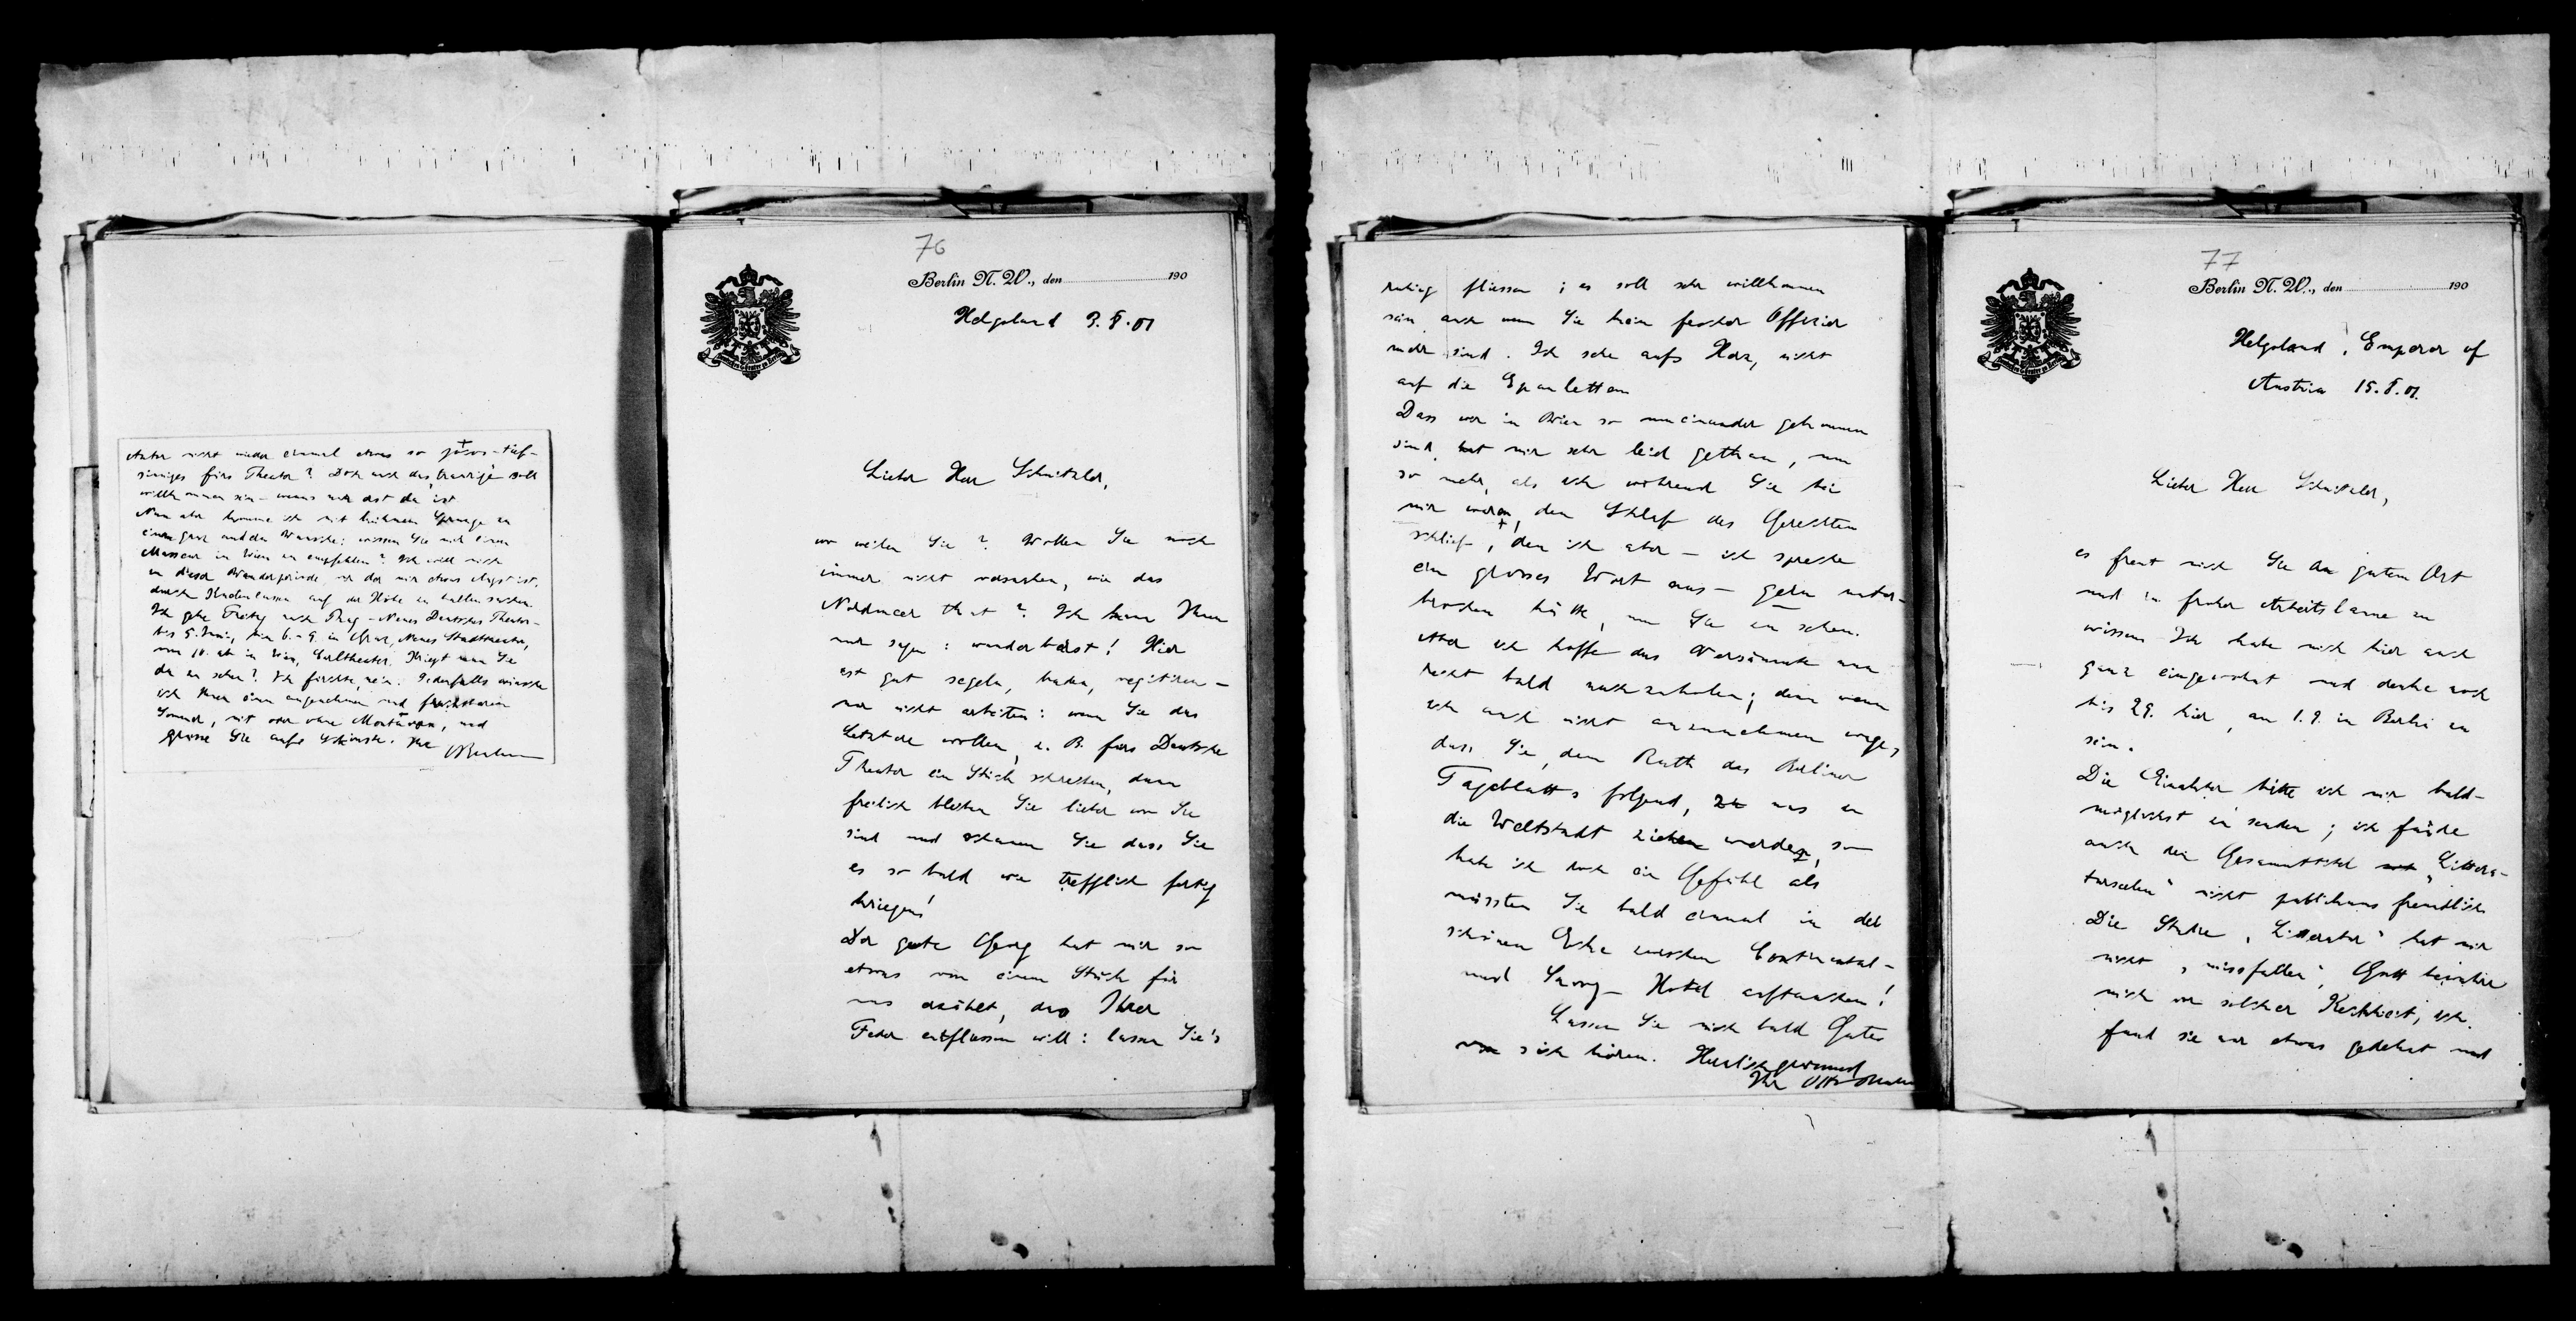 Autor nicht wieder einmal etwas so jovos-tief-
sinniges fürs Theater? Doch auch das Traurige soll
willkommen sein – wenns nur erst da ist.
Nun aber komme ich mit kühnem Sprunge zu
einem ganz andern Wunsche: wissen Sie mir einen
Masseur in Wien zu empfehlen? Ich will mich
in dieser Wanderperiode, vor der mir etwas Angst ist,
durch Knetenlassen auf der Höhe zu halten suchen.
Ich gehe Freitag nach Prag – Neues Deutsches Theater –
bis 5. Juni, bin 6.–9. in Graz, Neues Stadttheater,
vom 10. ab in Wien, Carltheater. Kriegt man Sie
da zu sehen? Ich fürchte, nein. Jedenfalls wünsche
ich Ihnen einen angenehmen und fruchtbaren
Sommer, mit oder ohne Montüren, und
grüsse Sie aufs Schönste. Ihr
OBrahm
76
Berlin N. W., den 190
Helgoland 3. 8. 01
Lieber Herr Schnitzler,
wo weilen Sie? Wollen Sie noch
immer nicht versuchen, wie das
Nordmeer thut? Ich kann Ihnen
nur sagen: wunderbarst! Hier
ist gut segeln, baden, vegitiren –
nur nicht arbeiten: wenn Sie das
Letztere wollen, z. B. fürs Deutsche
Theater ein Stück schreiben, dann
freilich bleiben Sie lieber wo Sie
sind und schauen Sie dass Sie
es so bald wie trefflich fertig
kriegen!
Der gute Georg hat mir so
etwas von einem Stück für
uns erzählt, das Ihrer
Feder entfliessen will: lassen Sie's
ruhig fliessen; es soll sehr willkommen
sein auch wenn Sie kein fescher Offizier
mehr sind. Ich sehe aufs Herz, nicht
auf die Epauletten
Dass wir in Wien so auseinander gekommen
sind, hat mir sehr leid gethan, um
so mehr, als ich während Sie bei
mir waren, den Schlaf des Gerechten
schlief, den ich aber – ich spreche
ein grosses Wort aus – gern unter-
brochen hätte, um Sie zu sehen.
Aber ich hoffe das Versäumte nun
recht bald nachzuholen; denn wenn
ich auch nicht anzunehmen wage,
dass Sie, dem Rath des Berliner
Tageblatts folgend, zu uns in
die Weltstadt ziehen werden, so
habe ich doch ein Gefühl als
müssten Sie bald einmal in der
schönen Ecke zwischen Continental-
und Savoy-Hotel auftauchen!
Lassen Sie mich bald Gutes
von sich hören. Herzlich grüssend
Ihr Otto Brahm
77
Berlin N. W., den 190
Helgoland, Emperor of
Austria 15. 8. 01.
Lieber Herr Schnitzler,
es freut mich Sie an gutem Ort
und in froher Arbeitslaune zu
wissen. Ich habe mich hier auch
ganz eingewohnt und denke noch
bis 29. hier, am 1. 9. in Berlin zu
sein.
Die Einakter bitte ich mir bald-
möglichst zu senden; ich finde
auch den Gesammttitel „Littera-
turseelen“ nicht publicumsfreundlich
Die Stücke „Litteratur“ hat mir
nicht „missfallen“, Gott bewahre
mich vor solcher Keckheit, ich
fand sie nur etwas gedehnt und